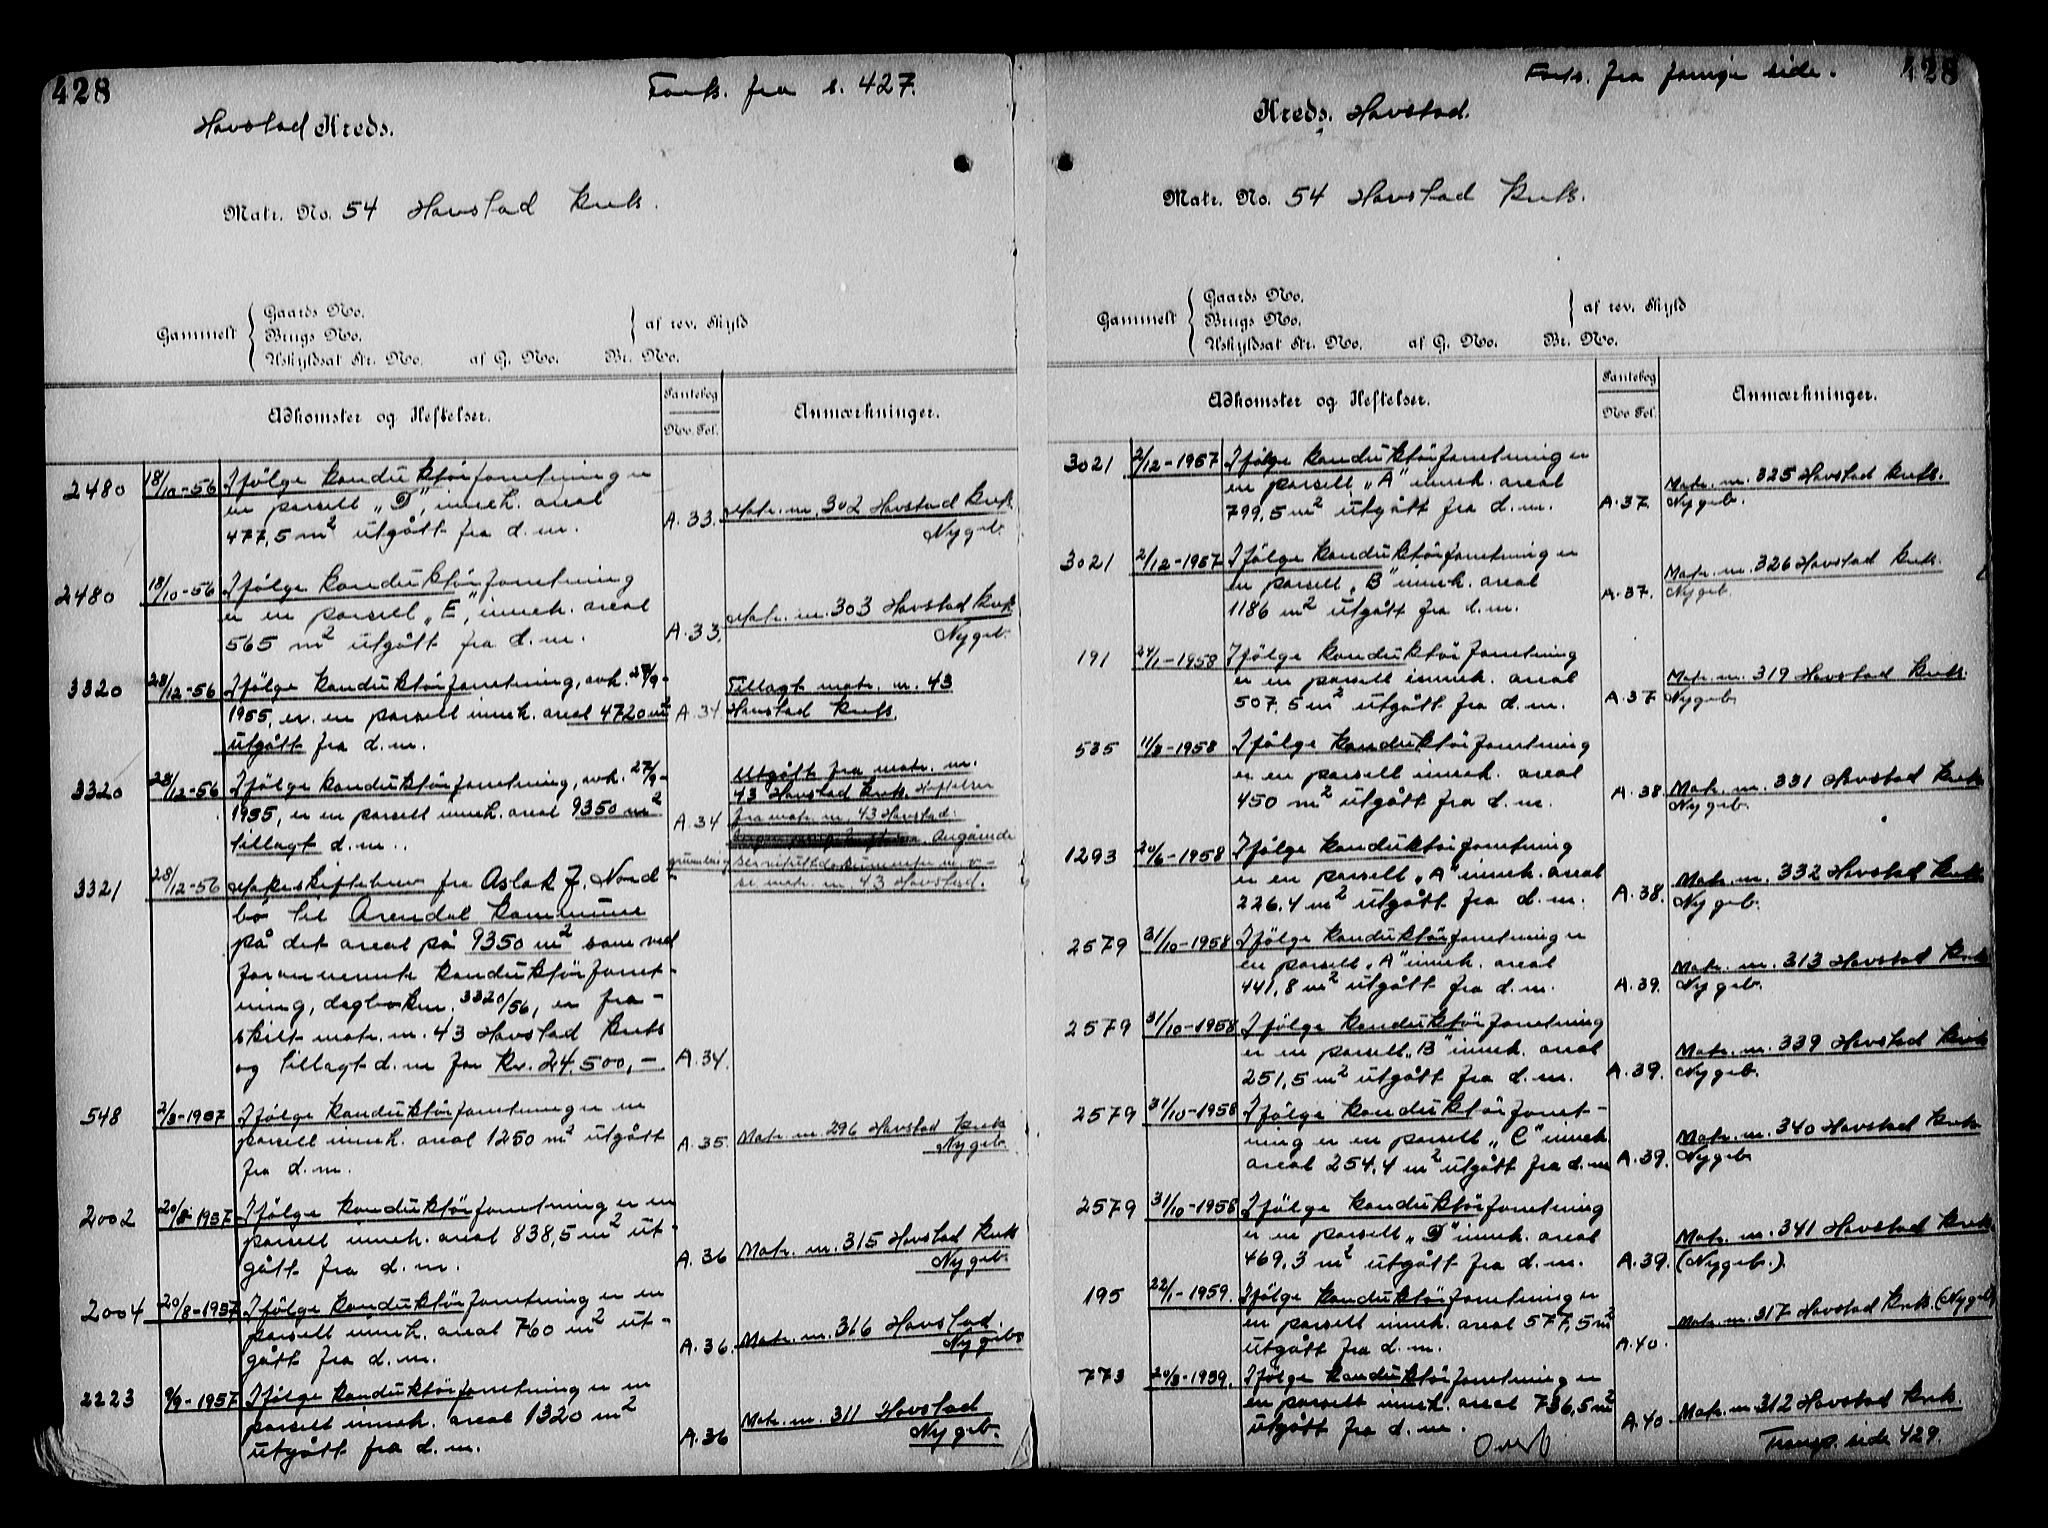 428
Forts. fra s. 427.
Havstad Kreds.
Matr. No. 54 Havstad krets.
Gammelt
Gaards No.
Brugs No.
Uskyldsat Str. No. af G. No. Br. No.
af rev. Skyld
Adkomster og Heftelser.
Pantebog
No. Fol.
Anmærkninger.
2480 18/10-56 Ifølge konduktørforretning er
en parsell „D", inneh. areal
477,5 m² utgått fra d.m. A.33. Matr. nr. 302 Havstad krk.
Nygeb.
2480 18/10-56 Ifølge konduktørforretning
er en parsell „E", inneh. areal
565 m² utgått fra d.m. A.33. Matr. nr. 303 Havstad krk
Nygeb.
3320 28/12-56 Ifølge konduktørforretning, avh. 27/9-
1955, er en parsell inneh. areal 4720 m²
utgått fra d.m. A.34
Tillagt matr. nr. 43
Havstad krets.
3320 28/12-56 Ifølge konduktørforretning, avh. 27/9-
1955, er en parsell inneh. areal 9350 m²
tillagt d.m. A.34
Utgått fra matr. nr.
43 Havstad krk. Heftelser
fra matr. nr. 43 Havstad.
Angående
grunnlag servituttdokumenter m.v.
se matr. nr. 43 Havstad.
3321 28/12-56 Makeskiftebrev fra Aslak J. Nord-
bø til Arendal kommune
på det areal på 9350 m² som ved
forannevnte konduktørforret-
ning, dagboknr. 3320/56, er fra-
skilt matr. nr. 43 Havstad krets
og tillagt d.m. for kr. 24.500,- A.34.
548 2/3-1957 Ifølge konduktørforretning er en
parsell inneh. areal 1250 m² utgått
fra d.m. A.35. Matr. nr. 296 Havstad krets
Nygeb.
2002 20/8-1957 Ifølge konduktørforretning er en
parsell inneh. areal 838,5 m² ut-
gått fra d.m. A.36 Matr. nr. 315 Havstad krets
Nygeb.
2004 20/8-1957 Ifølge konduktørforretning er en
parsell inneh. areal 760 m² ut-
gått fra d.m. A.36. Matr. nr. 316 Havstad.
Nygeb.
2223 9/9-1957 Ifølge konduktørforretning er en
parsell inneh. areal 1320 m²
utgått fra d.m. A.36 Matr. nr. 311 Havstad
Nygeb.
Forts. fra forrige side. 428
Kreds. Havstad.
Matr. No. 54 Havstad krets.
Gammelt
Gaards No.
Brugs No.
Uskyldsat Str. No. af G. No. Br. No.
af rev. Skyld
Adkomster og Heftelser.
Pantebog
No. Fol.
Anmærkninger.
3021 2/12-1957 Ifølge konduktørforretning er
en parsell „A" inneh. areal
799,5 m² utgått fra d.m. A.37. Matr. nr. 325 Havstad krets.
Nygeb.
3021 2/12-1957 Ifølge konduktørforretning er
en parsell „B" inneh. areal
1186 m² utgått fra d.m. A.37. Matr. nr. 326 Havstad krets.
Nygeb.
191 24/1-1958 Ifølge konduktørforretning
er en parsell inneh. areal
507,5 m² utgått fra d.m. A.37 Matr. nr. 319 Havstad krets.
Nygeb.
535 11/3-1958 Ifølge konduktørforretning
er en parsell inneh. areal
450 m² utgått fra d.m. A.38. Matr. nr. 331 Havstad krets
Nygeb.
1293 20/6-1958 Ifølge konduktørforretning
er en parsell „A" inneh. areal
226,4 m² utgått fra d.m. A.38. Matr. nr. 332 Havstad krets
Nygeb.
2579 31/10-1958 Ifølge konduktørforretning er
en parsell „A" inneh. areal
441,8 m² utgått fra d.m. A.39. Matr. nr. 313 Havstad krets
Nygeb.
2579 31/10-1958 Ifølge konduktørforretning
er en parsell „B" inneh. areal
251,5 m² utgått fra d.m. A.39. Matr. nr. 339 Havstad krets
Nygeb.
2579 31/10-1958 Ifølge konduktørforret-
ning er en parsell „C" inneh.
areal 254,4 m² utgått fra d.m A.39. Matr. nr. 340 Havstad krets
Nygeb
2579 31/10-1958 Ifølge konduktørforretning
er en parsell „D" inneh. areal
469,3 m² utgått fra d.m. A.39. Matr. nr. 341 Havstad krets.
(Nygeb.).
195 22/1-1959. Ifølge konduktørforretning er
en parsell inneh. areal 577,5 m²
utgått fra d.m. A.40. Matr. nr. 317 Havstad krets. (Nygeb)
773 20/3-1959. Ifølge konduktørforretning er
en parsell inneh. areal 736,5 m²
utgått fra d.m. A.40 Matr. nr. 312 Havstad krets.
Transp. side 429.